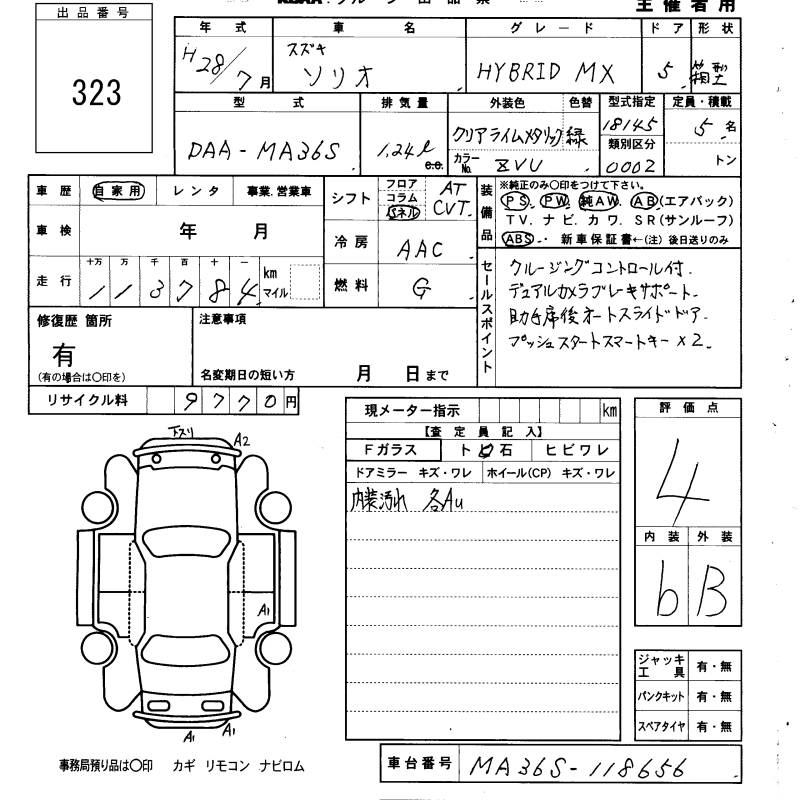 主催者用
出品番号
323
年式 車名 グレード ドア 形状
H28/7月 スズキ ソリオ HYBRID MX 5 箱型
型式 排気量 外装色 色替 型式指定 定員・積載
DAA-MA36S 1,24ℓ c.c. クリアライムメタリック 緑 18145 5名
カラーNo. ZVU 類別区分 0002 トン
車歴 自家用 レンタ 事業.営業車
車検 年 月
走行 十万 万 千 百 十 一
1 1 3 7 8 4 km マイル
シフト フロア コラム パネル AT CVT
冷房 AAC
燃料 G
装備品
※純正のみ〇印をつけて下さい。
PS. PW. 純AW. AB(エアバック)
TV. ナビ. カワ. SR(サンルーフ)
ABS. 新車保証書←(注)後日送りのみ
セールスポイント
クルージングコントロール付.
デュアルカメラブレーキサポート.
助手席後オートスライドドア.
プッシュスタートスマートキー×2.
修復歴 箇所
有
(有の場合は〇印を)
注意事項
名変期日の短い方 月 日まで
リサイクル料 9770円
現メーター指示 km
【査定員記入】
Fガラス ト ビ 石 ヒビワレ
ドアミラー キズ・ワレ ホイール(CP) キズ・ワレ
内装汚れ 各Au
評価点
4
内装 外装
b B
ジャッキ工具 有・無
パンクキット 有・無
スペアタイヤ 有・無
下スリ A2
A1
A1 A1
事務局預り品は〇印 カギ リモコン ナビロム
車台番号 MA36S-118656